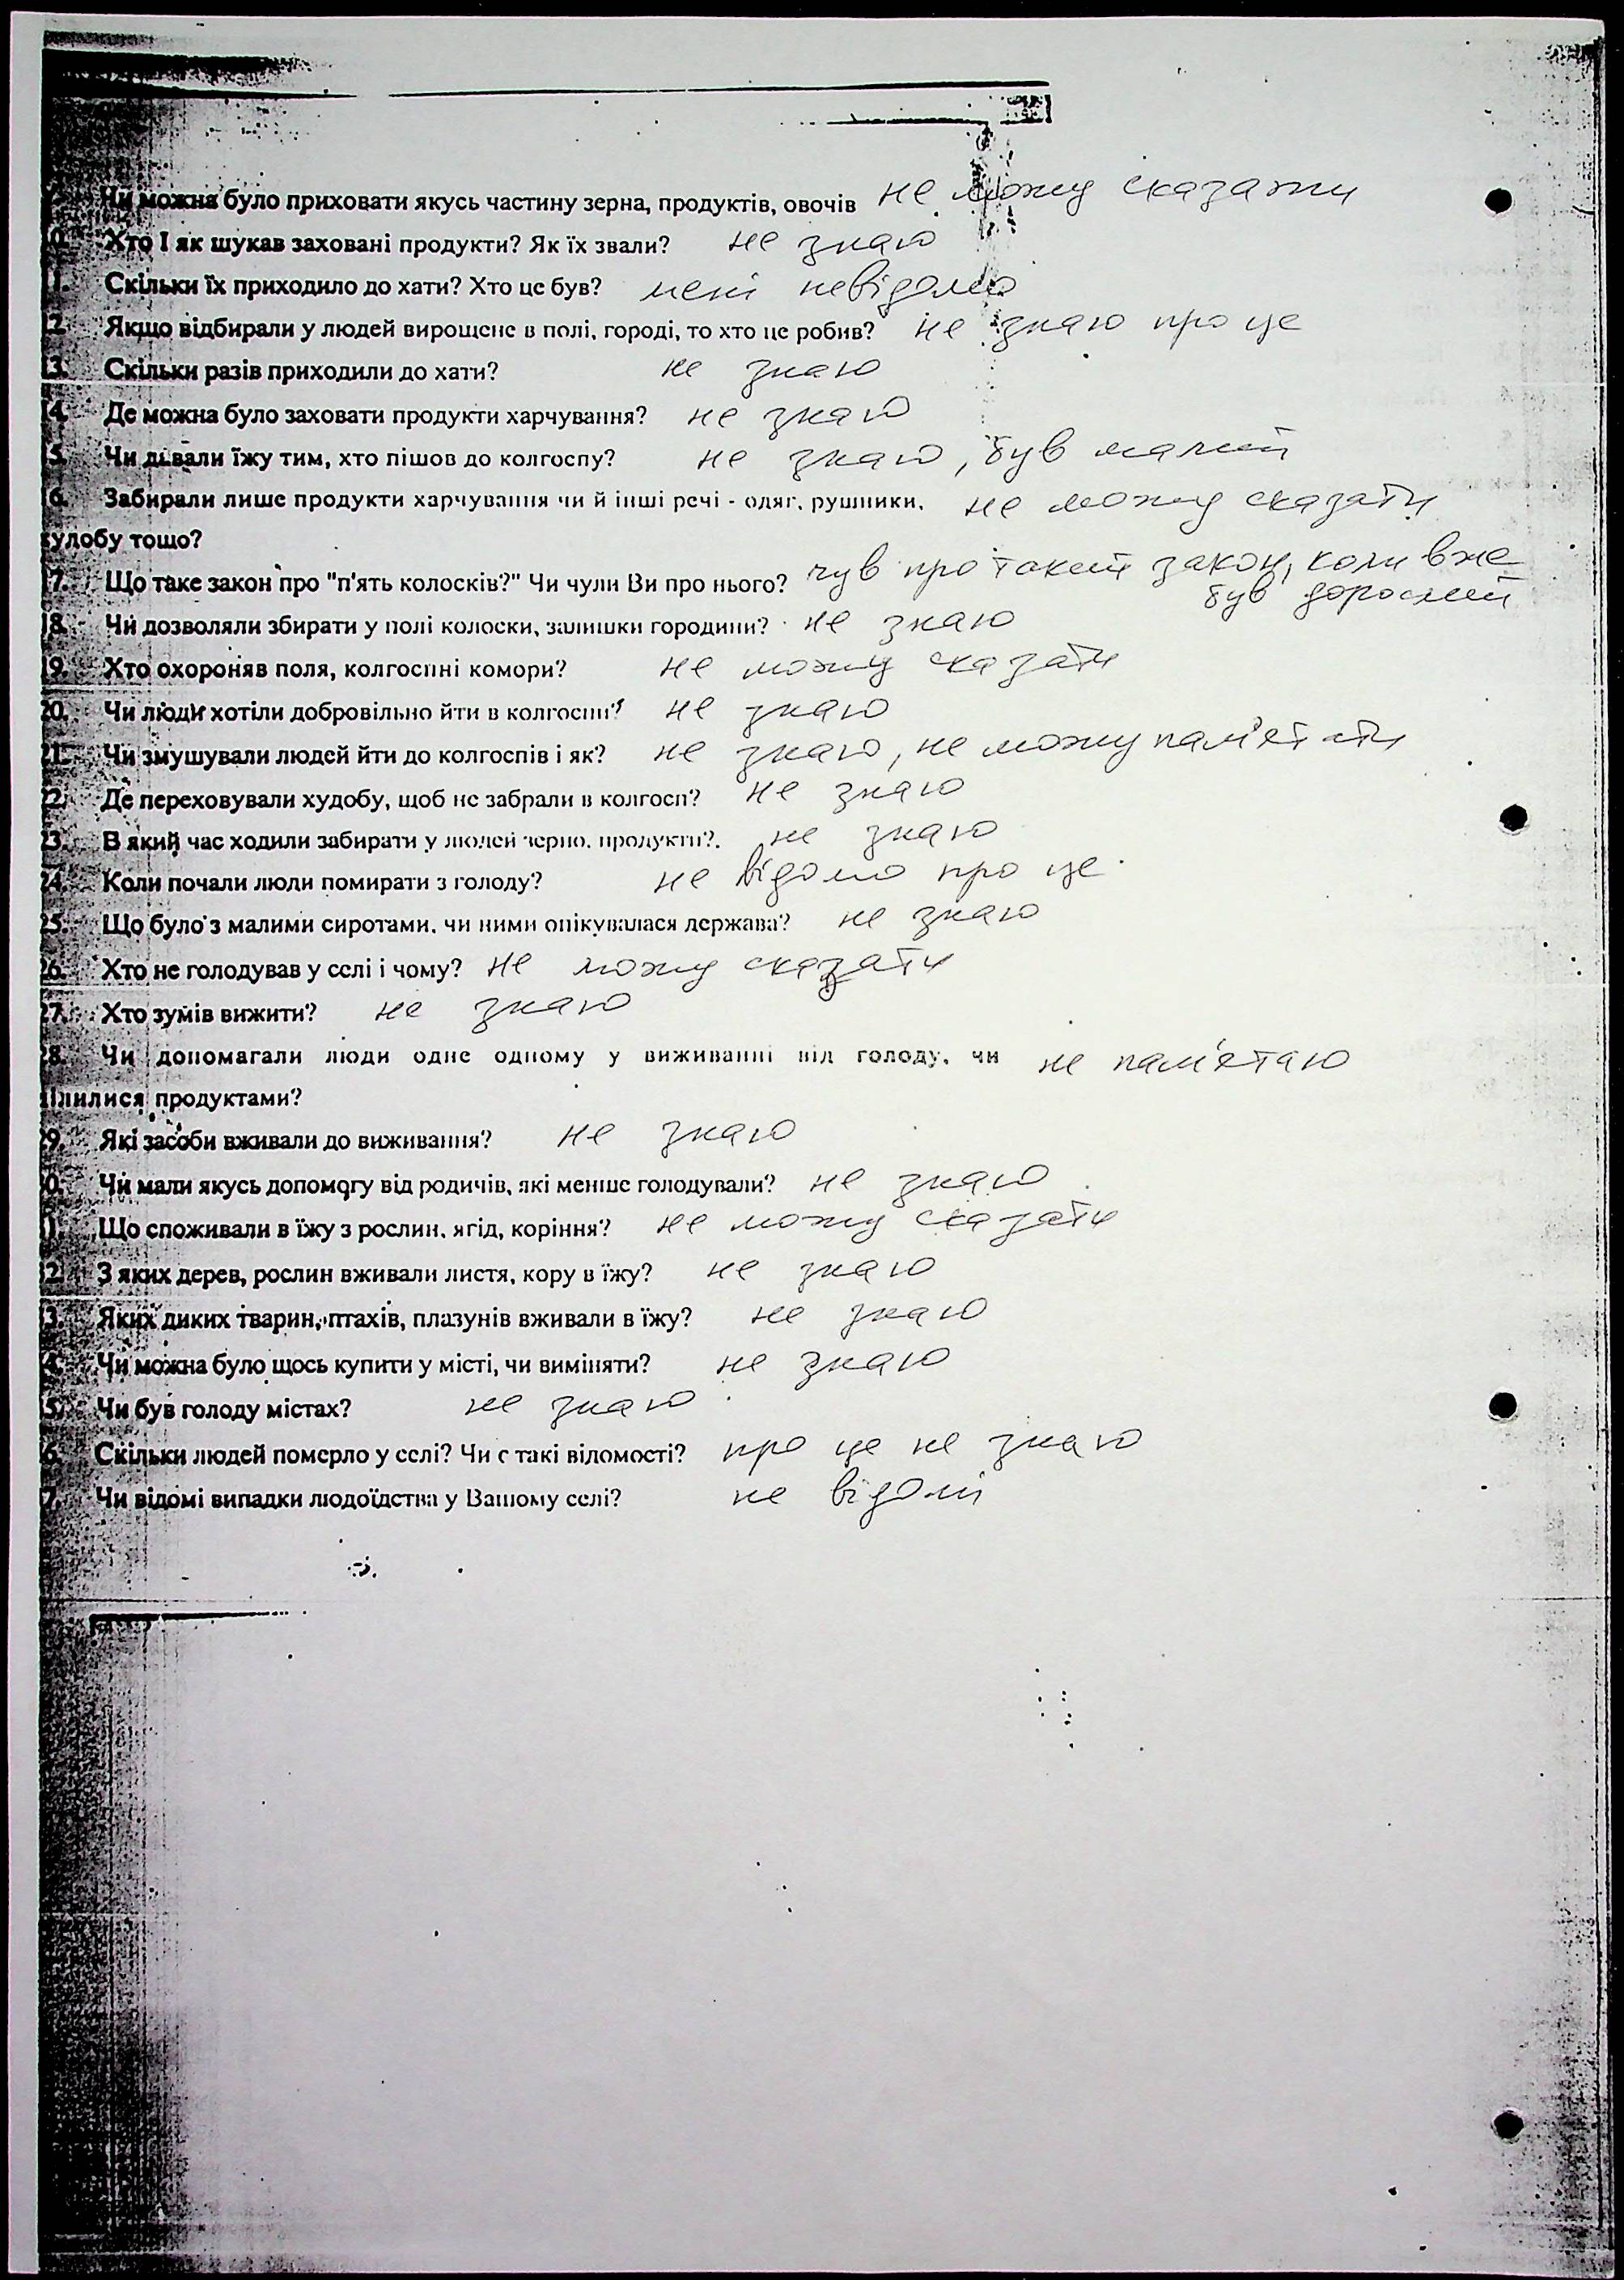 Чи можна було приховати якусь частину зерна, продуктів, овочів не можу сказати
10. Хто І як шукав заховані продукти? Як їх звали? не знаю
11. Скільки їх приходило до хати? Хто це був? мені невідомо
12. Якщо відбирали у людей вирощене в полі, городі, то хто це робив? не знаю про це
13. Скільки разів приходили до хати? не знаю
14. Де можна було заховати продукти харчування? не знаю
15. Чи давали їжу тим, хто пішов до колгоспу? не знаю, був малий
16. Забирали лише продукти харчування чи й інші речі - одяг, рушники, не можу сказати
худобу тощо?
17. Що таке закон про "п'ять колосків?" Чи чули Ви про нього? чув про такий закон, коли вже
був дорослий
18. Чи дозволяли збирати у полі колоски, залишки городини? не знаю
19. Хто охороняв поля, колгоспні комори? не можу сказати
20. Чи люди хотіли добровільно йти в колгоспи? не знаю
21. Чи змушували людей йти до колгоспів і як? не знаю, не можу пам'ятати
22. Де переховували худобу, щоб не забрали в колгосп? не знаю
23. В який час ходили забирати у людей зерно, продукти?. не знаю
24. Коли почали люди помирати з голоду? не відомо про це
25. Що було з малими сиротами, чи ними опікувалася держава? не знаю
26. Хто не голодував у селі і чому? не можу сказати
27. Хто зумів вижити? не знаю
28. Чи допомагали люди одне одному у виживанні від голоду, чи не пам'ятаю
ділилися продуктами?
29. Які засоби вживали до виживання? не знаю
30. Чи мали якусь допомогу від родичів, які менше голодували? не знаю
31. Що споживали в їжу з рослин, ягід, коріння? не можу сказати
32. З яких дерев, рослин вживали листя, кору в їжу? не знаю
33. Яких диких тварин, птахів, плазунів вживали в їжу? не знаю
34. Чи можна було щось купити у місті, чи виміняти? не знаю
35. Чи був голоду містах? не знаю
36. Скільки людей померло у селі? Чи є такі відомості? про це не знаю
37. Чи відомі випадки людоїдства у Вашому селі? не відомі